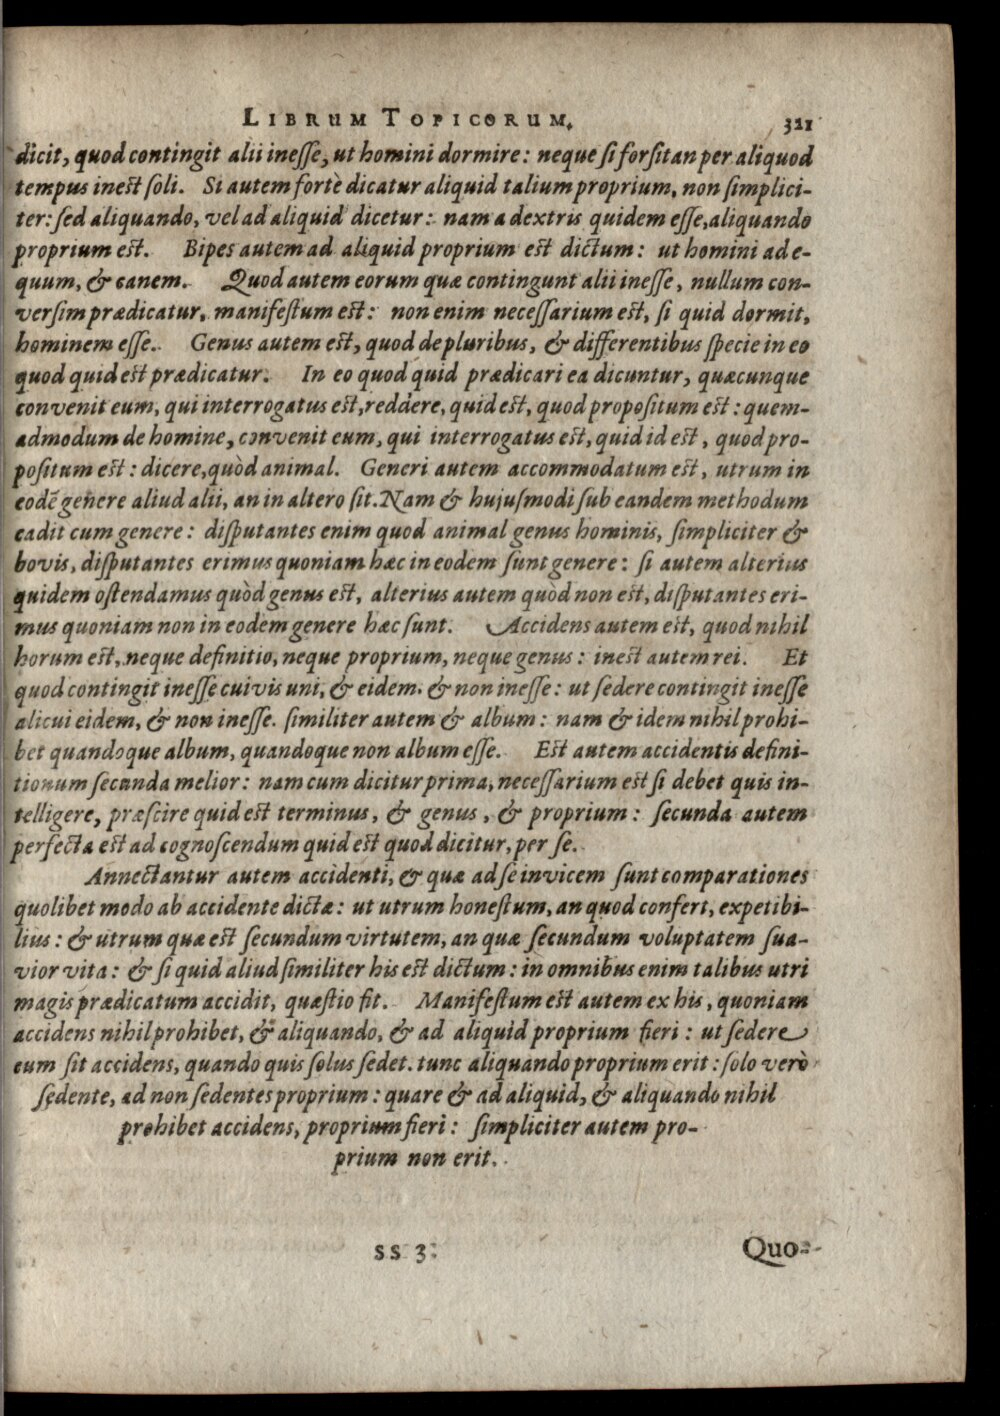 LIBRUM TOPICORUM. 321
dicit, quod contingit alii inesse, ut homini dormire: neque si forsitan per aliquod
tempus inest soli. Si autem fortè dicatur aliquid talium proprium, non simplici-
ter: sed aliquando, vel ad aliquid dicetur: nam a dextris quidem esse, aliquando
proprium est. Bipes autem ad aliquid proprium est dictum: ut homini ad e-
quum, & canem. Quod autem eorum quæ contingunt alii inesse, nullum con-
versim prædicatur, manifestum est: non enim necessarium est, si quid dormit,
hominem esse. Genus autem est, quod de pluribus, & differentibus specie in eo
quod quid est prædicatur. In eo quod quid prædicari ea dicuntur, quæcunque
convenit eum, qui interrogatus est, reddere, quid est, quod propositum est: quem-
admodum de homine, convenit eum, qui interrogatus est, quid id est, quod pro-
positum est: dicere, quòd animal. Generi autem accommodatum est, utrum in
eodē genere aliud alii, an in altero sit. Nam & hujusmodi sub eandem methodum
cadit cum genere: disputantes enim quod animal genus hominis, simpliciter &
bovis, disputantes erimus quoniam hæc in eodem sunt genere: si autem alterius
quidem ostendamus quòd genus est, alterius autem quòd non est, disputantes eri-
mus quoniam non in eodem genere hæc sunt. Accidens autem est, quod nihil
horum est, neque definitio, neque proprium, neque genus: inest autem rei. Et
quod contingit inesse cuivis uni, & eidem. & non inesse: ut sedere contingit inesse
alicui eidem, & non inesse. similiter autem & album: nam & idem nihil prohi-
bet quandoque album, quandoque non album esse. Est autem accidentis defini-
tionum secunda melior: nam cum dicitur prima, necessarium est si debet quis in-
telligere, præscire quid est terminus, & genus, & proprium: secunda autem
perfecta est ad cognoscendum quid est quod dicitur, per se.
Annectantur autem accidenti, & quæ ad se invicem sunt comparationes
quolibet modo ab accidente dictæ: ut utrum honestum, an quod confert, expetibi-
lius: & utrum quæ est secundum virtutem, an quæ secundum voluptatem sua-
vior vita: & si quid aliud similiter his est dictum: in omnibus enim talibus utri
magis prædicatum accidit, quæstio fit. Manifestum est autem ex his, quoniam
accidens nihil prohibet, & aliquando, & ad aliquid proprium fieri: ut sedere
cum sit accidens, quando quis solus sedet. tunc aliquando proprium erit: solo verò
sedente, ad non sedentes proprium: quare & ad aliquid, & aliquando nihil
prohibet accidens, proprium fieri: simpliciter autem pro-
prium non erit.
SS 3 Quo-